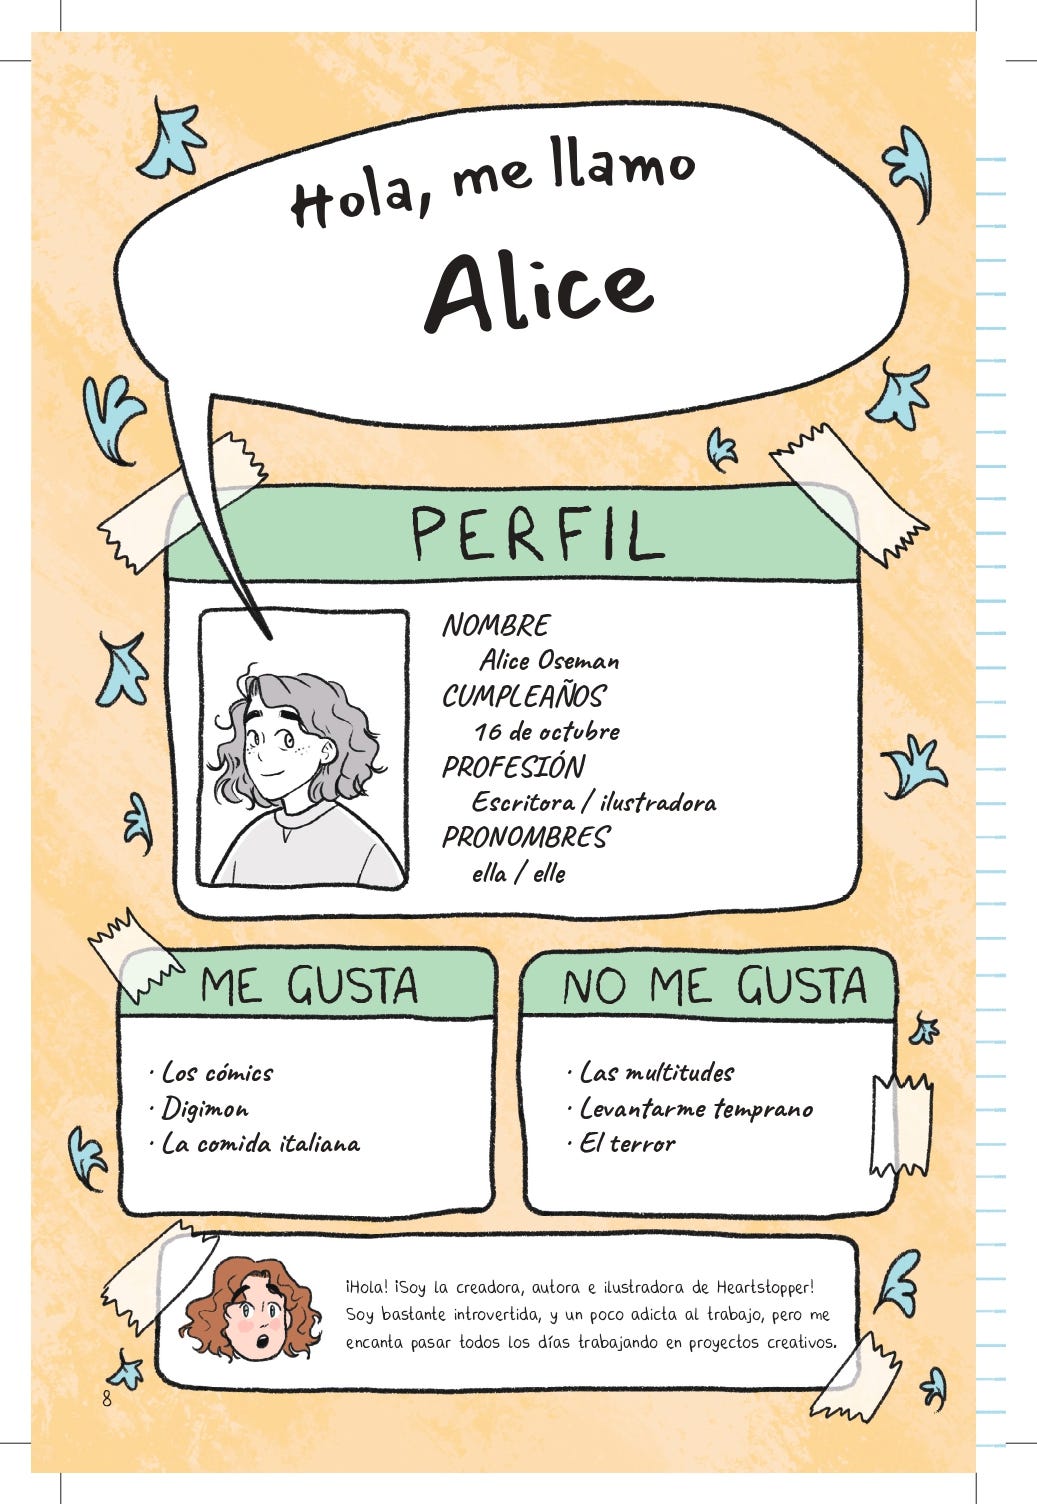 Hola, me llamo
Alice
PERFIL
NOMBRE
Alice Oseman
CUMPLEAÑOS
16 de octubre
PROFESIÓN
Escritora / ilustradora
PRONOMBRES
ella / elle
ME GUSTA
· Los cómics
· Digimon
· La comida italiana
NO ME GUSTA
· Las multitudes
· Levantarme temprano
· El terror
¡Hola! ¡Soy la creadora, autora e ilustradora de Heartstopper!
Soy bastante introvertida, y un poco adicta al trabajo, pero me
encanta pasar todos los días trabajando en proyectos creativos.
8